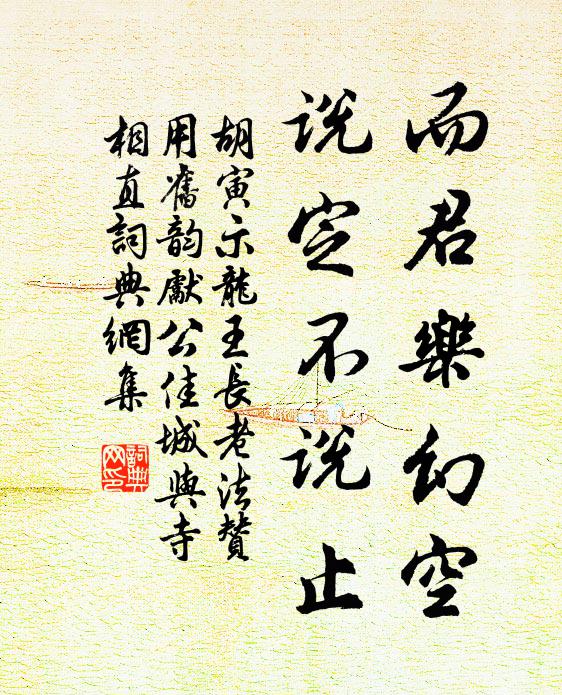 而君樂幻空
說定不說止
胡寅示龍王長老法贊
用舊韵獻公佳城與寺
相直詞典網集
詞典
網印